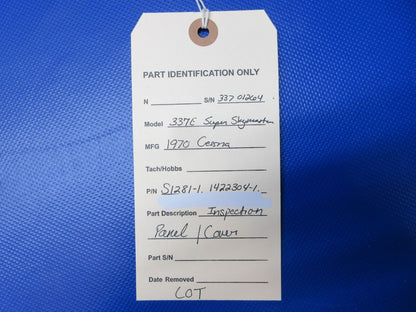 PART IDENTIFICATION ONLY
N S/N 33701264
Model 337E Super Skymaster
MFG 1970 Cessna
Tach/Hobbs
P/N S1281-1. 1422304-1.
Part Description Inspection
Panel / Cover
Part S/N
Date Removed
LOT